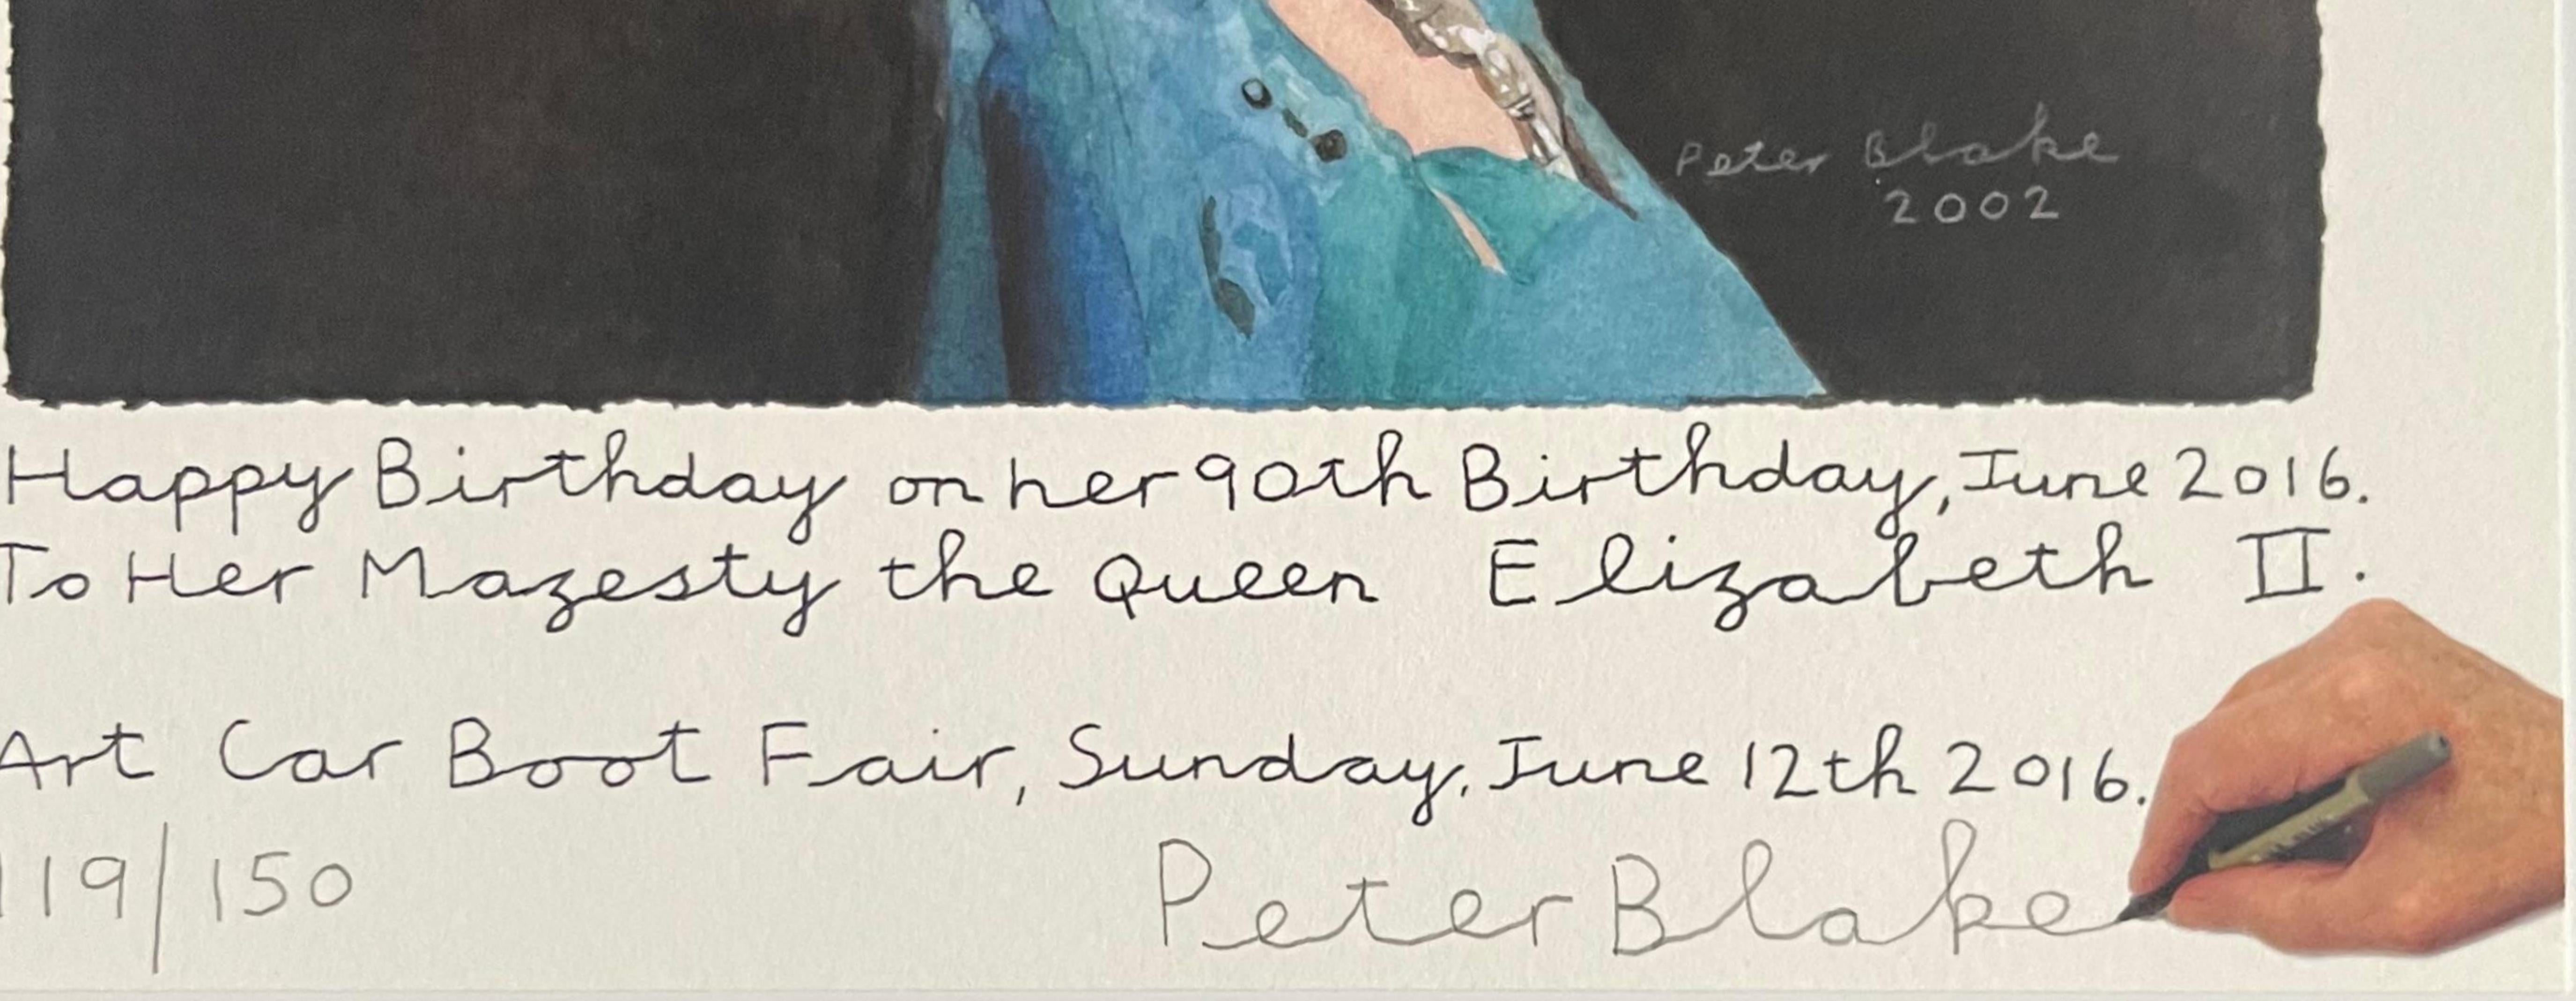 Peter Blake
2002
Happy Birthday on her 90th Birthday, June 2016.
To Her Mazesty the Queen Elizabeth II.
Art Car Boot Fair, Sunday, June 12th 2016.
119/150
Peter Blake